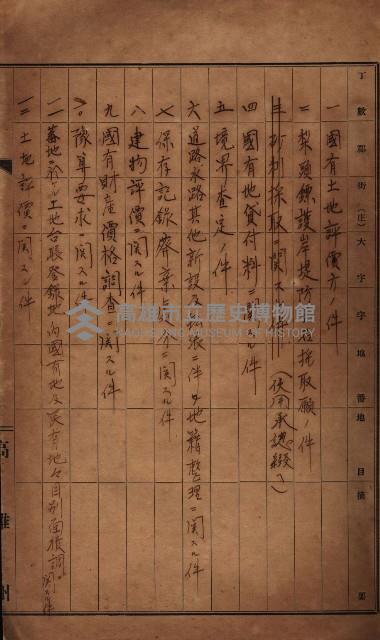 丁數 郡 街(庄) 大字 字 地番 地目 積
一 國有土地評價方ノ件
二 梨頭鏢護岸堤防 石採取願ノ件
三 砂利採取ニ関スル件 (使用承認綴へ)
四 國有地貸付料ニ関スル件
五 境界査定ノ件
六 道路水路其他新設及拡張ニ伴フ地籍整理ニ関スル件
七 保存記錄齊棄處分ニ関スル件
八 建物評價ニ関スル件
九 國有財産價格調査ニ関スル件
一〇 豫算要求ニ関スル件
一一 蕃地ニ於ケル土地台帳登錄地ノ內國有地及民有地々目別面積調ニ関スル件
一二 土地評價ニ関スル件
高雄州
高雄市立歷史博物館